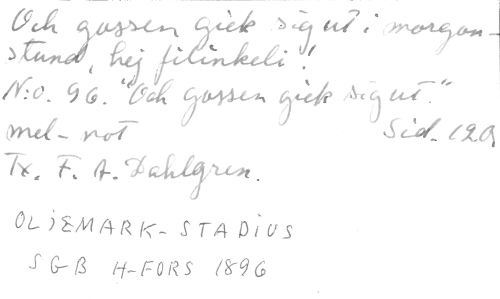 Och gossen gick sig ut i morgon-
stund, hej filinkeli!
N:o. 96. "Och gossen gick sig ut."
mel-not Sid. 120.
Tx. F. A. Dahlgren.
OLJEMARK-STADIUS
SGB H-FORS 1896